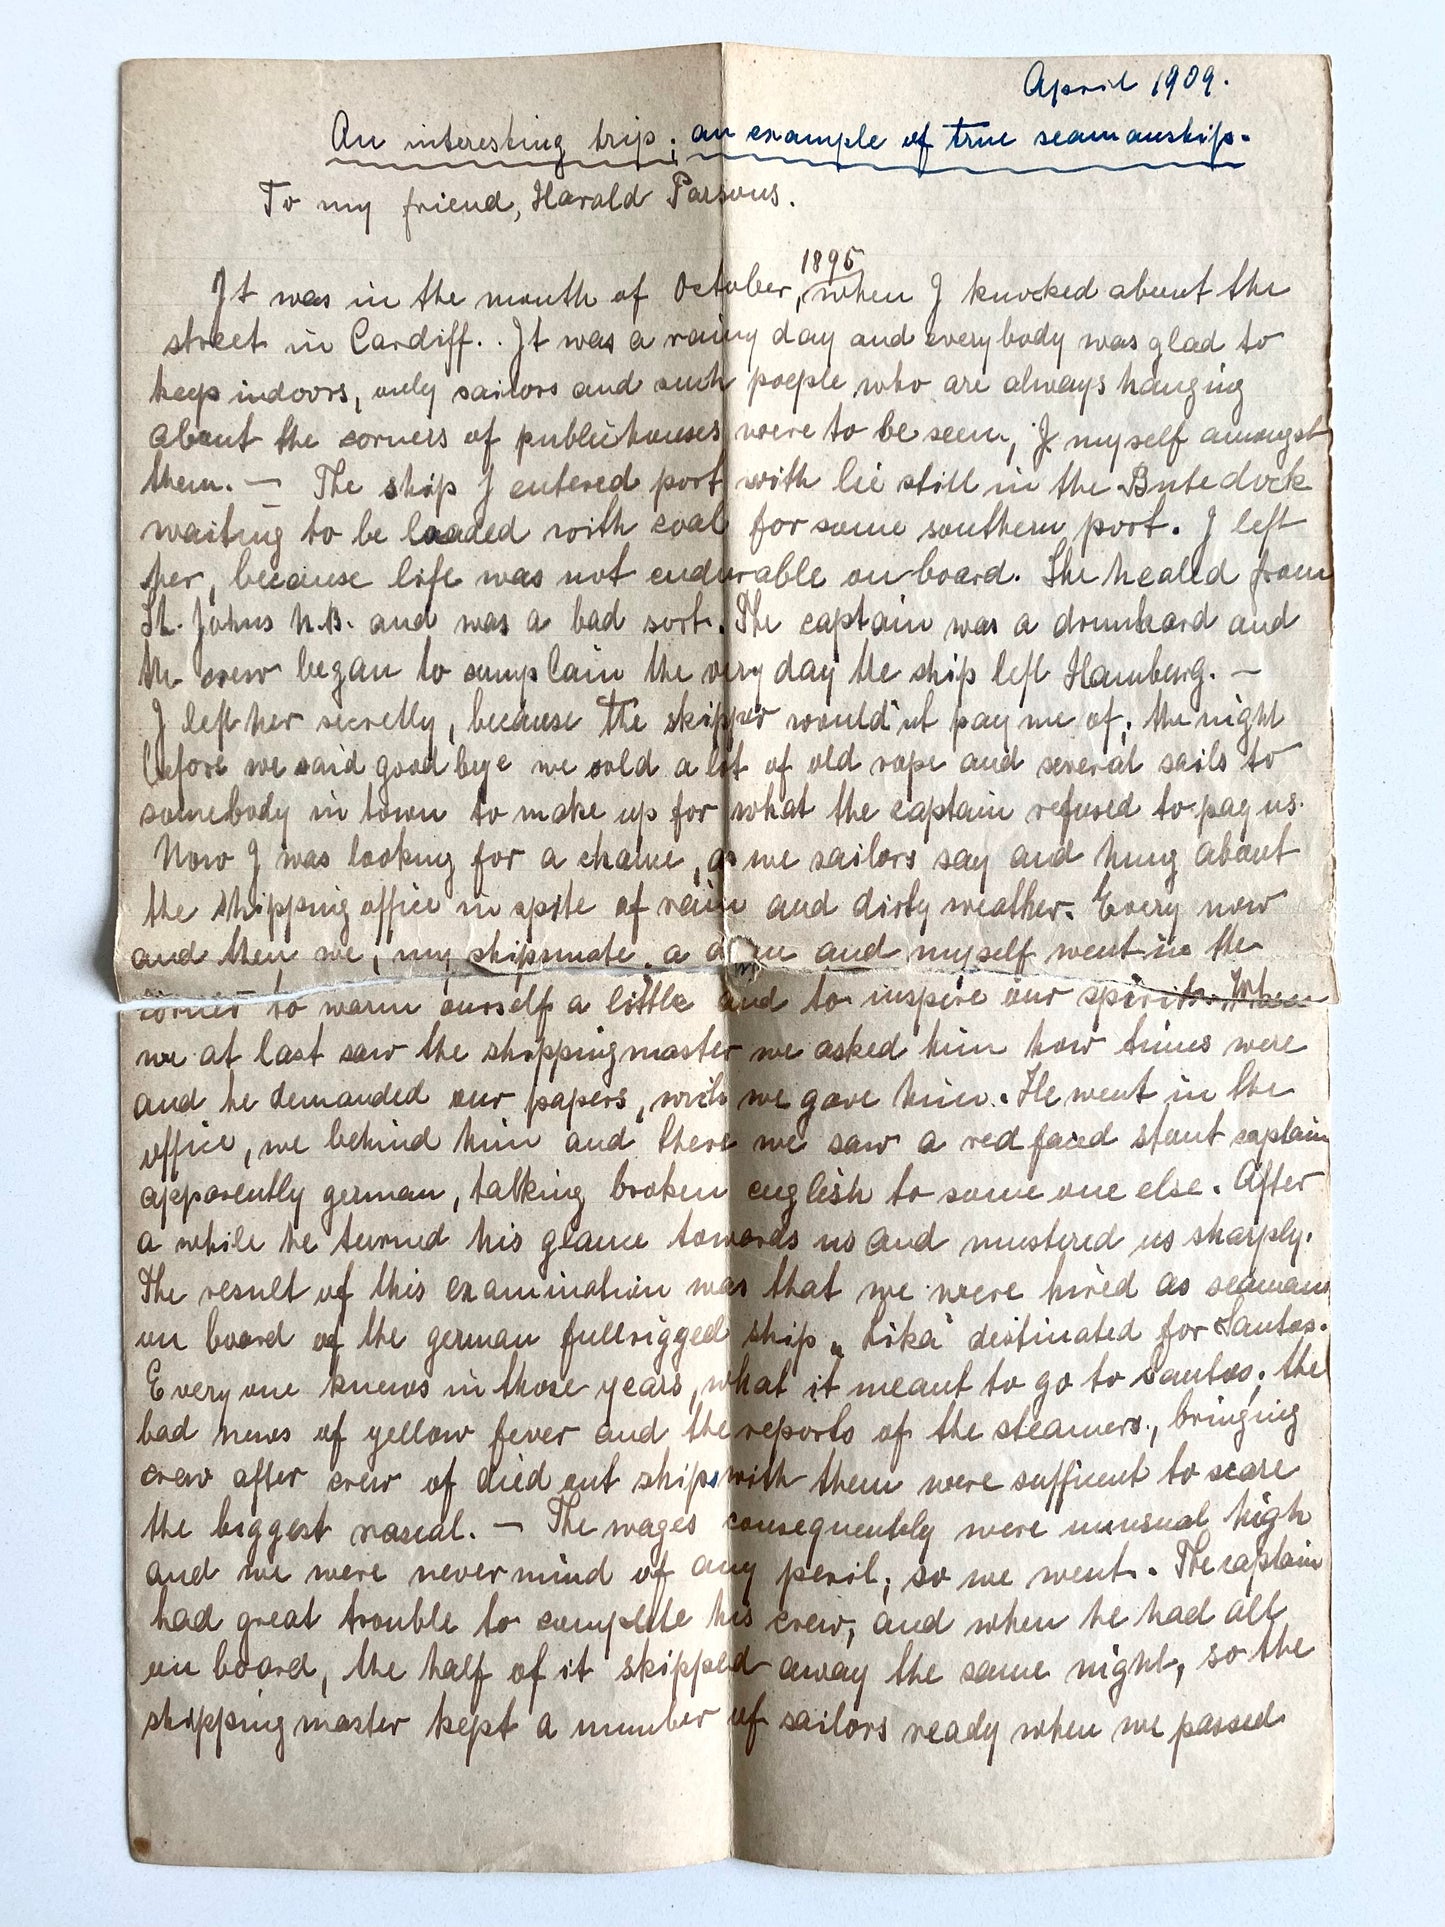 April 1909.
An interesting trip; an example of true seamanship.
To my friend, Harald Parsons.
1895
It was in the month of October, when I knocked about the
street in Cardiff.. It was a rainy day and everybody was glad to
keep indoors, only sailors and such poeple who are always hanging
about the corners of publichouses were to be seen, I myself amongst
them. — The ship I entered port with lie still in the Bute dock
waiting to be loaded with coal for some southern port. I left
her, because life was not endurable on board. She healed from
St. Johns N.B. and was a bad sort. The captain was a drunkard and
the crew began to complain the very day the ship left Hamburg. —
I left her secretly, because the skipper would'nt pay me of; the night
before we said good bye we sold a lot of old rope and several sails to
somebody in town to make up for what the captain refused to pay us.
Now I was looking for a chance, as we sailors say and hung about
the shipping office in spite of rain and dirty weather. Every now
and then we, my shipmate, a and myself went in the
corner to warm ourself a little and to inspire our spirits. When
we at last saw the shippingmaster we asked him how times were
and he demanded our papers, wich we gave him. He went in the
office, we behind him and there we saw a red faced stout captain
apparently german, talking broken english to some one else. After
a while he turned his glance towards us and mustered us sharply.
The result of this examination was that we were hired as seamans
on board of the german fullrigged ship „Lika" destinated for Santos.
Every one knews in those years, what it meant to go to Santos; the
bad news of yellow fever and the reports of the steamers, bringing
crew after crew of died out ships with them were sufficent to scare
the biggest rascal. — The wages consequently were unusual high
and we were never mind of any peril; so we went. The captain
had great trouble to complete his crew; and when he had all
on board, the half of it skipped away the same night, so the
shippingmaster kept a number of sailors ready when we passed